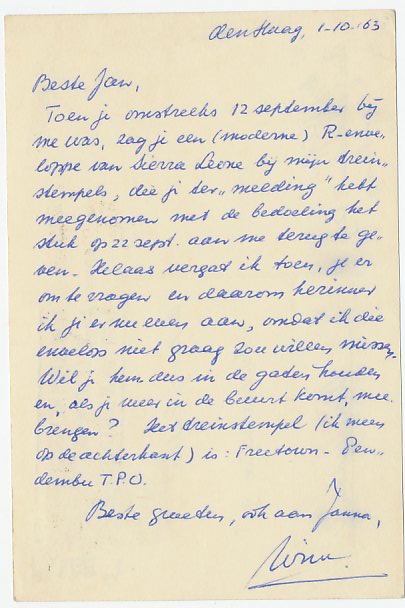 den Haag, 1-10-'63
Beste Jan,
Toen je omstreeks 12 september bij
me was, zag je een (moderne) R-enve-
loppe van Sierra Leone bij mijn trein-
stempels, die je ter „meeding” hebt
meegenomen met de bedoeling het
stuk op 22 sept. aan me terug te ge-
ven. Helaas vergat ik toen, je er
om te vragen en daarom herinner
ik je er nu even aan, omdat ik die
envelop niet graag zou willen missen.
Wil je hem dus in de gaten houden
en, als je weer in de buurt komt, mee
brengen? Het treinstempel (ik meen
op de achterkant) is: Freetown - Pen-
dembu T.P.O.
Beste groeten, ook aan Janna,